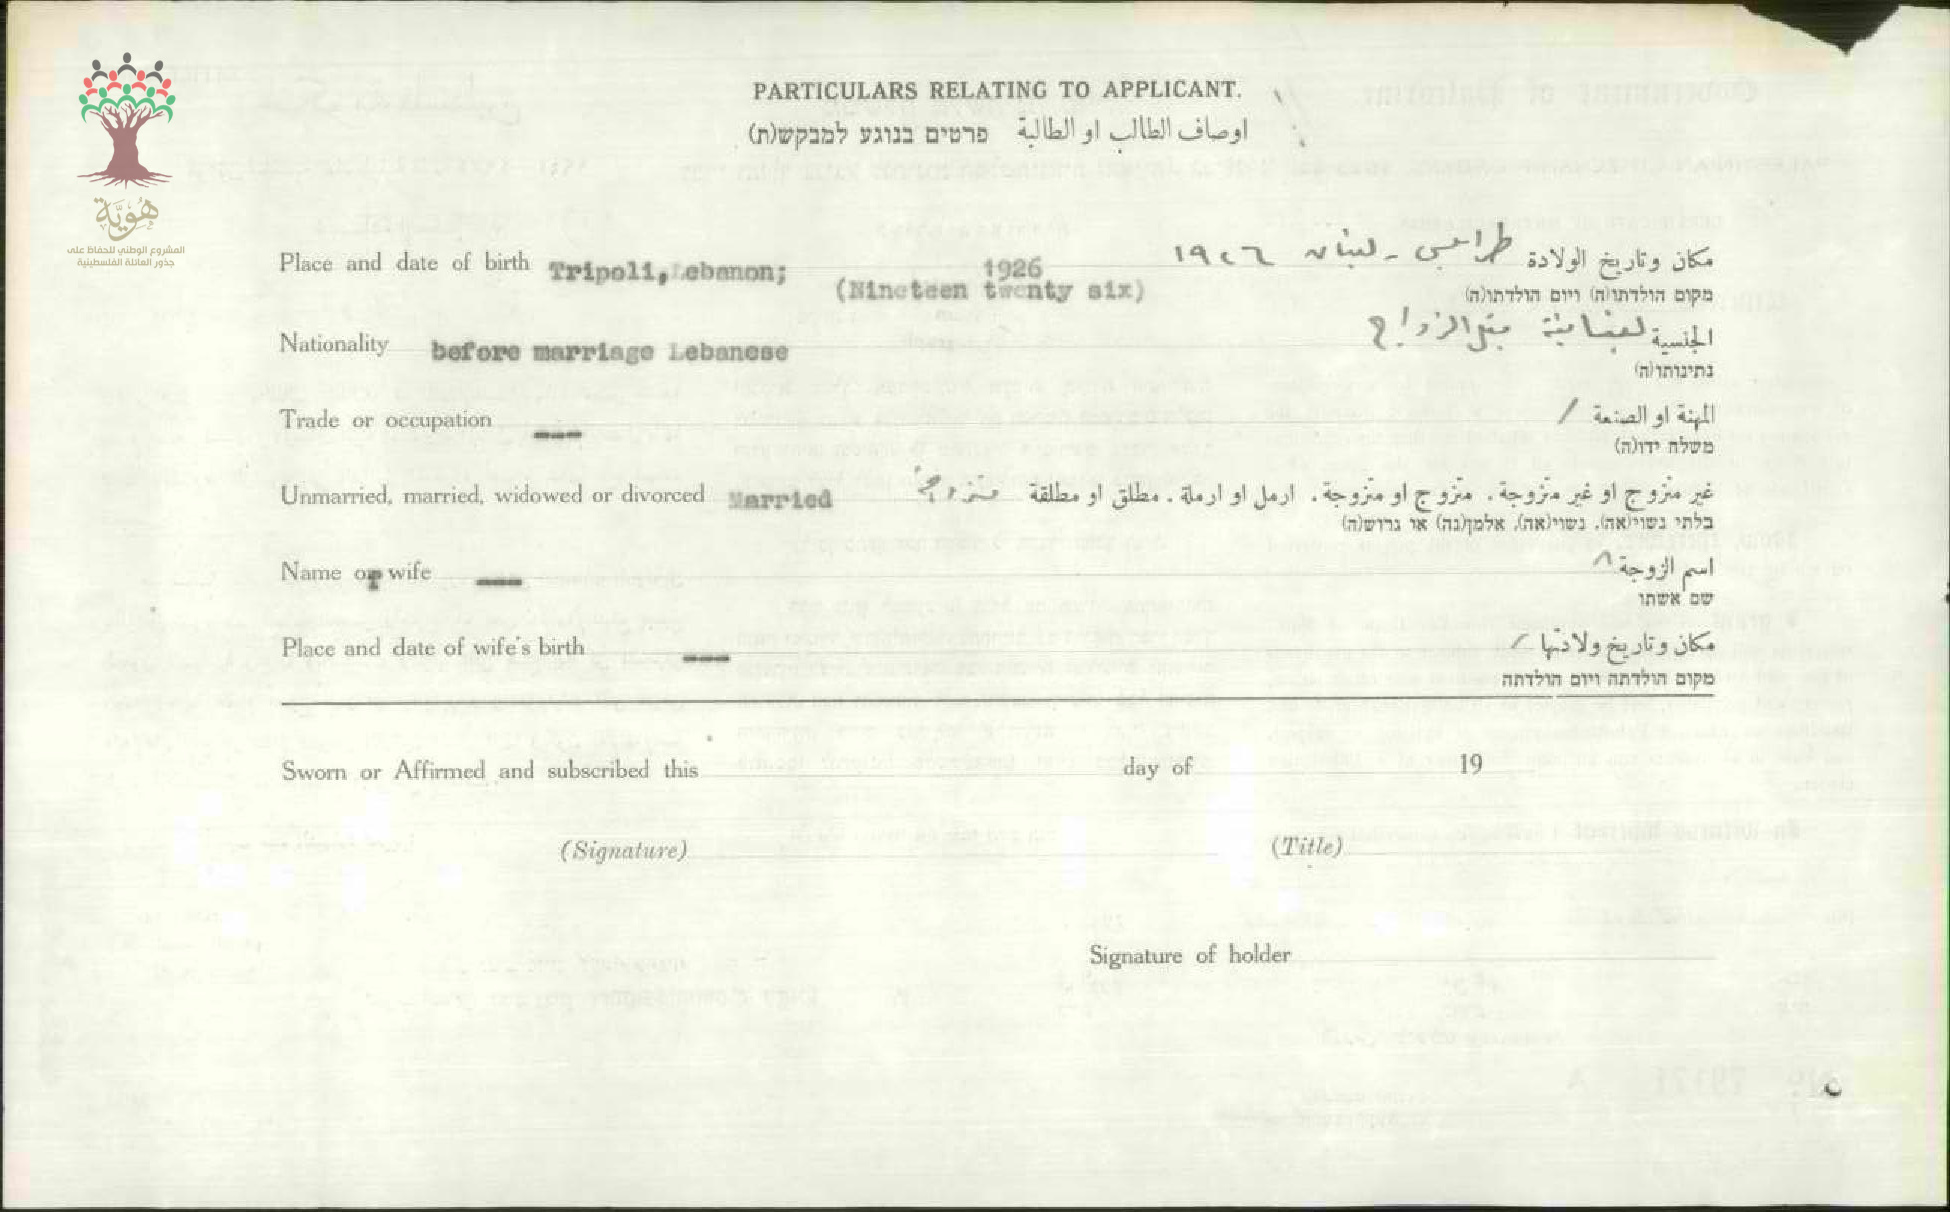 PARTICULARS RELATING TO APPLICANT.
اوصاف الطالب او الطالبة פרטים בנוגע למבקש(ת)
هُوِيَّة
المشروع الوطني للحفاظ على
جذور العائلة الفلسطينية
Place and date of birth Tripoli, Lebanon; 1926 طرابلس - لبنان ١٩٢٦ مكان وتاريخ الولادة
(Nineteen twenty six) מקום הולדתו(ה) ויום הולדתו(ה)
Nationality before marriage Lebanese لبنانية قبل الزواج الجنسية
נתינותו(ה)
Trade or occupation --- / المهنة او الصنعة
משלח ידו(ה)
Unmarried, married, widowed or divorced Married متزوجة غير متزوج او غير متزوجة. متزوج او متزوجة. ارمل او ارملة. مطلق او مطلقة
בלתי נשוי(אה), נשוי(אה), אלמן(נה) או גרוש(ה)
Name or wife --- اسم الزوجة
שם אשתו
Place and date of wife's birth --- / مكان وتاريخ ولادتها
מקום הולדתה ויום הולדתה
Sworn or Affirmed and subscribed this day of 19
(Signature) (Title)
Signature of holder